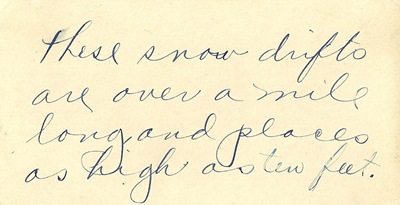 these snow drifts
are over a mile
long and places
as high as ten feet.